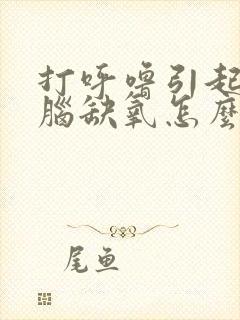 打呼噜引起
腦缺氧怎麼
尾鱼